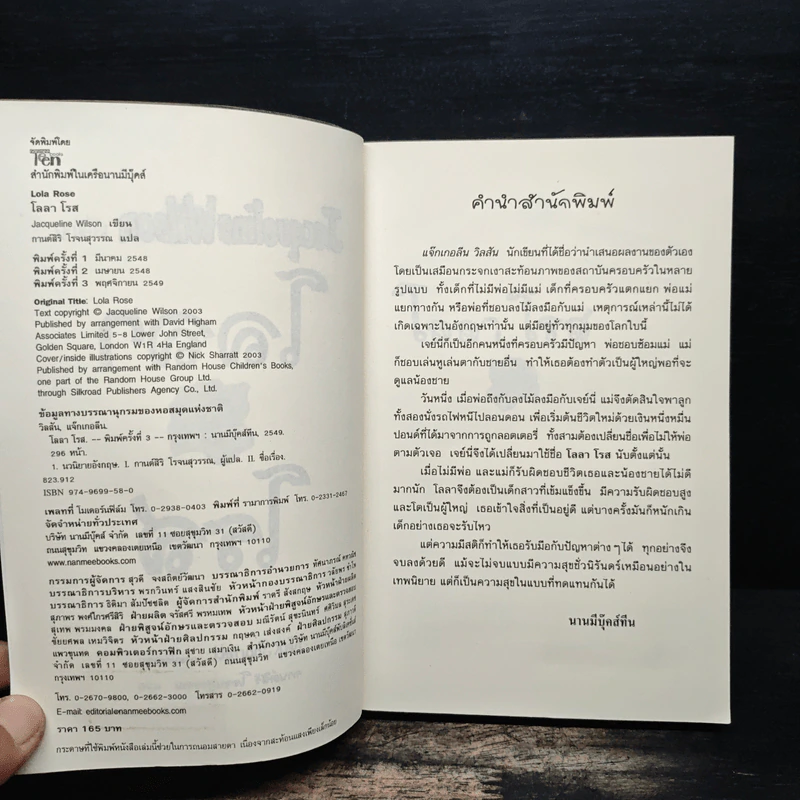 จัดพิมพ์โดย
Ten
สำนักพิมพ์ในเครือนานมีบุ๊คส์
Lola Rose
โลลา โรส
Jacqueline Wilson เขียน
กานต์สิริ โรจนสุวรรณ แปล
พิมพ์ครั้งที่ 1 มีนาคม 2548
พิมพ์ครั้งที่ 2 เมษายน 2548
พิมพ์ครั้งที่ 3 พฤศจิกายน 2549
Original Title: Lola Rose
Text copyright © Jacqueline Wilson 2003
Published by arrangement with David Higham
Associates Limited 5-8 Lower John Street,
Golden Square, London W1R 4Ha England
Cover/inside illustrations copyright © Nick Sharratt 2003
Published by arrangement with Random House Children's Books,
one part of the Random House Group Ltd.
through Silkroad Publishers Agency Co., Ltd.
ข้อมูลทางบรรณานุกรมของหอสมุดแห่งชาติ
วิลสัน, แจ๊กเกอลีน.
โลลา โรส. -- พิมพ์ครั้งที่ 3 -- กรุงเทพฯ : นานมีบุ๊คส์ทีน, 2549.
296 หน้า.
1. นวนิยายอังกฤษ. I. กานต์สิริ โรจนสุวรรณ, ผู้แปล. II. ชื่อเรื่อง.
823.912
ISBN 974-9699-58-0
เพลทที่ ไมเดอร์นฟิล์ม โทร. 0-2938-0403 พิมพ์ที่ รามาการพิมพ์ โทร. 0-2331-2457
จัดจำหน่ายทั่วประเทศ
บริษัท นานมีบุ๊คส์ จำกัด เลขที่ 11 ซอยสุขุมวิท 31 (สวัสดี)
ถนนสุขุมวิท แขวงคลองเตยเหนือ เขตวัฒนา กรุงเทพฯ 10110
www.nanmeebooks.com
กรรมการผู้จัดการ สุวดี จงสถิตย์วัฒนา บรรณาธิการอำนวยการ ทัศนาภรณ์
บรรณาธิการบริหาร พรกวินทร์ แสงสินชัย หัวหน้ากองบรรณาธิการ
บรรณาธิการ ธิติมา สัมปัชชลิต ผู้จัดการสำนักพิมพ์ ราตรี สังสกฤษ
สุภาพร พงศ์ไกรศรีสิริ ฝ่ายผลิต จรัสศรี พรหมเทพ หัวหน้าฝ่ายพิสูจน์อักษรและตรวจสอบ
สุเทพ พรมมงคล ฝ่ายพิสูจน์อักษรและตรวจสอบ มณีรัตน์ สุขะนินทร์
ชัยยศพล เหมวิจิตร หัวหน้าฝ่ายศิลปกรรม กฤษดา เส่งสงค์ ฝ่ายศิลปกรรม
แพวขุนทด คอมพิวเตอร์กราฟิก สุชาย เสมาเงิน สำนักงาน บริษัท
จำกัด เลขที่ 11 ซอยสุขุมวิท 31 (สวัสดี) ถนนสุขุมวิท แขวงคลองเตยเหนือ เขตวัฒนา
กรุงเทพฯ 10110
โทร. 0-2670-9800, 0-2662-3000 โทรสาร 0-2662-0919
E-mail: editorial@nanmeebooks.com
ราคา 165 บาท
กระดาษที่ใช้พิมพ์หนังสือเล่มนี้ช่วยในการถนอมสายตา เนื่องจากสะท้อนแสงเพียงเล็กน้อย
คำนำสำนักพิมพ์
แจ๊กเกอลีน วิลสัน นักเขียนที่ได้ชื่อว่านำเสนอผลงานของตัวเอง
โดยเป็นเสมือนกระจกเงาสะท้อนภาพของสถาบันครอบครัวในหลาย
รูปแบบ ทั้งเด็กที่ไม่มีพ่อไม่มีแม่ เด็กที่ครอบครัวแตกแยก พ่อแม่
แยกทางกัน หรือพ่อที่ชอบลงไม้ลงมือกับแม่ เหตุการณ์เหล่านี้ไม่ได้
เกิดเฉพาะในอังกฤษเท่านั้น แต่มีอยู่ทั่วทุกมุมของโลกใบนี้
เจย์นี่ก็เป็นอีกคนหนึ่งที่ครอบครัวมีปัญหา พ่อชอบซ้อมแม่ แม่
ก็ชอบเล่นหูเล่นตากับชายอื่น ทำให้เธอต้องทำตัวเป็นผู้ใหญ่พอที่จะ
ดูแลน้องชาย
วันหนึ่ง เมื่อพ่อถึงกับลงไม้ลงมือกับเจย์นี่ แม่จึงตัดสินใจพาลูก
ทั้งสองนั่งรถไฟหนีไปลอนดอน เพื่อเริ่มต้นชีวิตใหม่ด้วยเงินหนึ่งหมื่น
ปอนด์ที่ได้มาจากการถูกลอตเตอรี่ ทั้งสามต้องเปลี่ยนชื่อเพื่อไม่ให้พ่อ
ตามตัวเจอ เจย์นี่จึงได้เปลี่ยนมาใช้ชื่อ โลลา โรส นับตั้งแต่นั้น
เมื่อไม่มีพ่อ และแม่ก็รับผิดชอบชีวิตเธอและน้องชายได้ไม่ดี
มากนัก โลลาจึงต้องเป็นเด็กสาวที่เข้มแข็งขึ้น มีความรับผิดชอบสูง
และโตเป็นผู้ใหญ่ เธอเข้าใจสิ่งที่เป็นอยู่ดี แต่บางครั้งมันก็หนักเกิน
เด็กอย่างเธอจะรับไหว
แต่ความมีสติก็ทำให้เธอรับมือกับปัญหาต่างๆ ได้ ทุกอย่างจึง
จบลงด้วยดี แม้จะไม่จบแบบมีความสุขชั่วนิรันดร์เหมือนอย่างใน
เทพนิยาย แต่ก็เป็นความสุขในแบบที่ทดแทนกันได้
นานมีบุ๊คส์ทีน